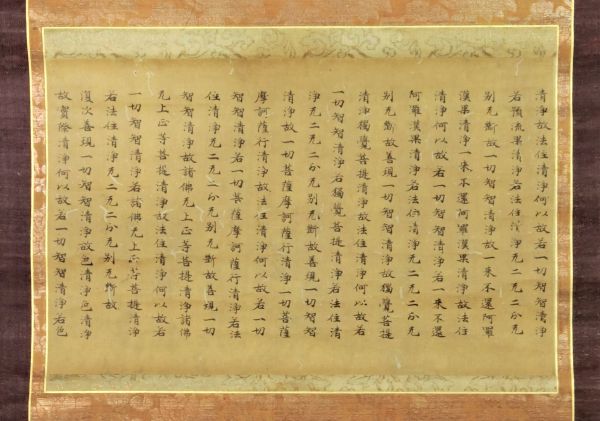 清淨故法住清淨何以故若一切智智清淨
若預流果清淨若法住清淨无二无二分无
別无斷故一切智智清淨故一來不還阿羅
漢果清淨一來不還阿羅漢果清淨故法住
清淨何以故若一切智智清淨若一來不還
阿羅漢果清淨若法住清淨无二无二分无
別无斷故善現一切智智清淨故獨覺菩提
清淨獨覺菩提清淨故法住清淨何以故若
一切智智清淨若獨覺菩提清淨若法住清
淨无二无二分无別无斷故善現一切智智
清淨故一切菩薩摩訶薩行清淨一切菩薩
摩訶薩行清淨故法住清淨何以故若一切
智智清淨若一切菩薩摩訶薩行清淨若法
住清淨无二无二分无別无斷故善現一切
智智清淨故諸佛无上正等菩提清淨諸佛
无上正等菩提清淨故法住清淨何以故若
一切智智清淨若諸佛无上正等菩提清淨
若法住清淨无二无二分无別无斷故
復次善現一切智智清淨故色清淨色清淨
故實際清淨何以故若一切智智清淨若色